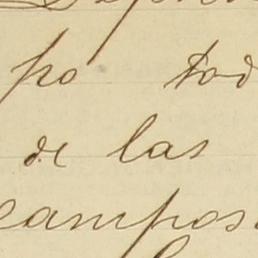 po tod
de las
campos.